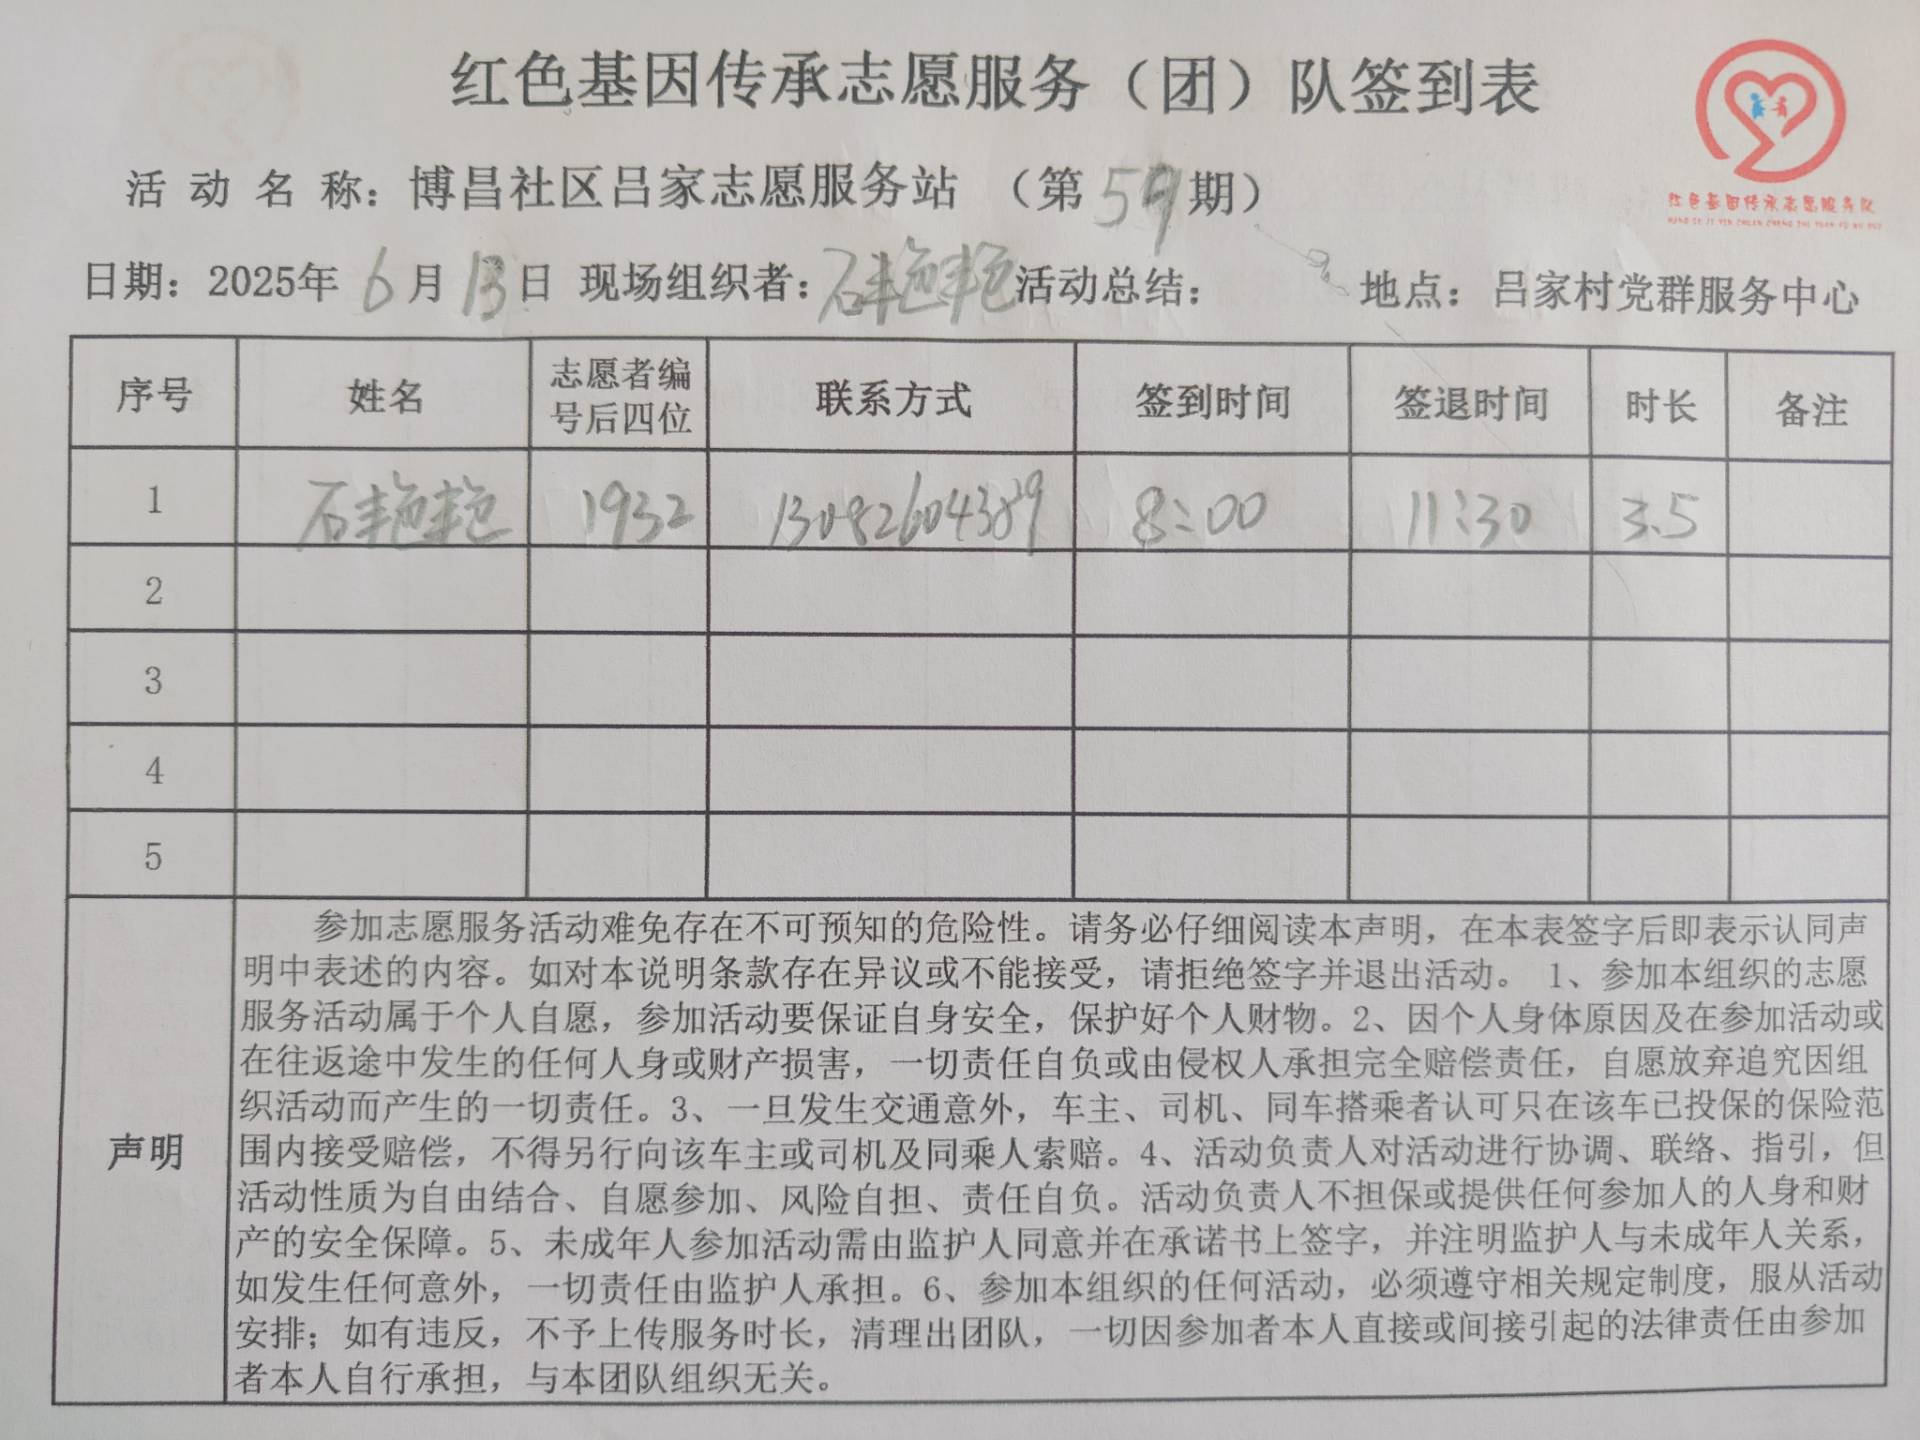 红色基因传承志愿服务（团）队签到表
红色基因传承志愿服务队
HONG SE JI YIN CHUAN CHENG ZHI YUAN FU WU DUI
活动名称：博昌社区吕家志愿服务站（第59期）
日期：2025年6月13日 现场组织者：石艳艳 活动总结： 地点：吕家村党群服务中心
序号 姓名 志愿者编号后四位 联系方式 签到时间 签退时间 时长 备注
1 石艳艳 1932 13082604389 8:00 11:30 3.5
2
3
4
5
声明
参加志愿服务活动难免存在不可预知的危险性。请务必仔细阅读本声明，在本表签字后即表示认同声
明中表述的内容。如对本说明条款存在异议或不能接受，请拒绝签字并退出活动。 1、参加本组织的志愿
服务活动属于个人自愿，参加活动要保证自身安全，保护好个人财物。2、因个人身体原因及在参加活动或
在往返途中发生的任何人身或财产损害，一切责任自负或由侵权人承担完全赔偿责任，自愿放弃追究因组
织活动而产生的一切责任。3、一旦发生交通意外，车主、司机、同车搭乘者认可只在该车已投保的保险范
围内接受赔偿，不得另行向该车主或司机及同乘人索赔。4、活动负责人对活动进行协调、联络、指引，但
活动性质为自由结合、自愿参加、风险自担、责任自负。活动负责人不担保或提供任何参加人的人身和财
产的安全保障。5、未成年人参加活动需由监护人同意并在承诺书上签字，并注明监护人与未成年人关系，
如发生任何意外，一切责任由监护人承担。6、参加本组织的任何活动，必须遵守相关规定制度，服从活动
安排；如有违反，不予上传服务时长，清理出团队，一切因参加者本人直接或间接引起的法律责任由参加
者本人自行承担，与本团队组织无关。